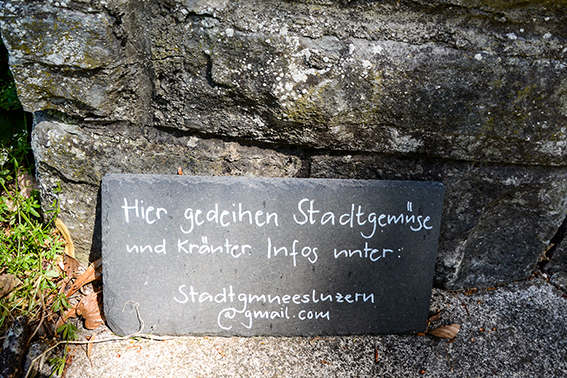 Hier gedeihen Stadtgemüse
und Kräuter. Infos unter:
Stadtgmueesluzern
@gmail.com